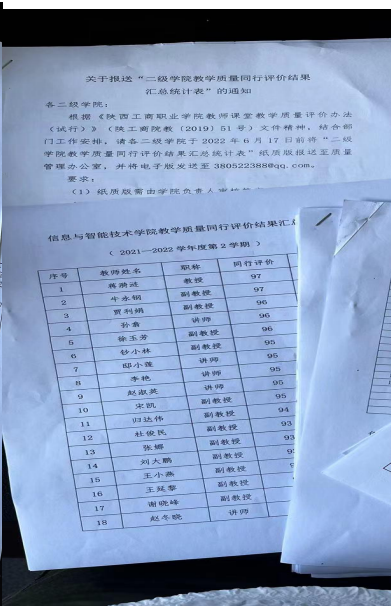 关于报送“二级学院教学质量同行评价结果
汇总统计表”的通知
各二级学院：
根据《陕西工商职业学院教师课堂教学质量评价办法
（试行）》（陕工商院教〔2019〕51号）文件精神，结合部
门工作安排，请各二级学院于2022年6月17日前将“二级
学院教学质量同行评价结果汇总统计表”纸质版报送至质量
管理办公室，并将电子版发送至380522388@qq.com。
要求：
（1）纸质版需由学院负责人审核
信息与智能技术学院教学质量同行评价结果汇总
（2021—2022学年度第2学期）
序号 教师姓名 职称 同行评价
1 蒋漪涟 教授 97
2 牛永钢 副教授 97
3 贾利娟 副教授 96
4 孙翁 讲师 96
5 徐玉芳 副教授 96
6 钞小林 副教授 95
7 邸小莲 讲师 95
8 李艳 讲师 95
9 赵淑英 讲师 95
10 宋凯 副教授 95
11 归达伟 副教授 94
12 杜俊民 副教授 93
13 张娜 副教授 93
14 刘大鹏 副教授
15 王小燕 副教授
16 王延黎 副教授
17 谢晓峰 副教授
18 赵冬晓 讲师